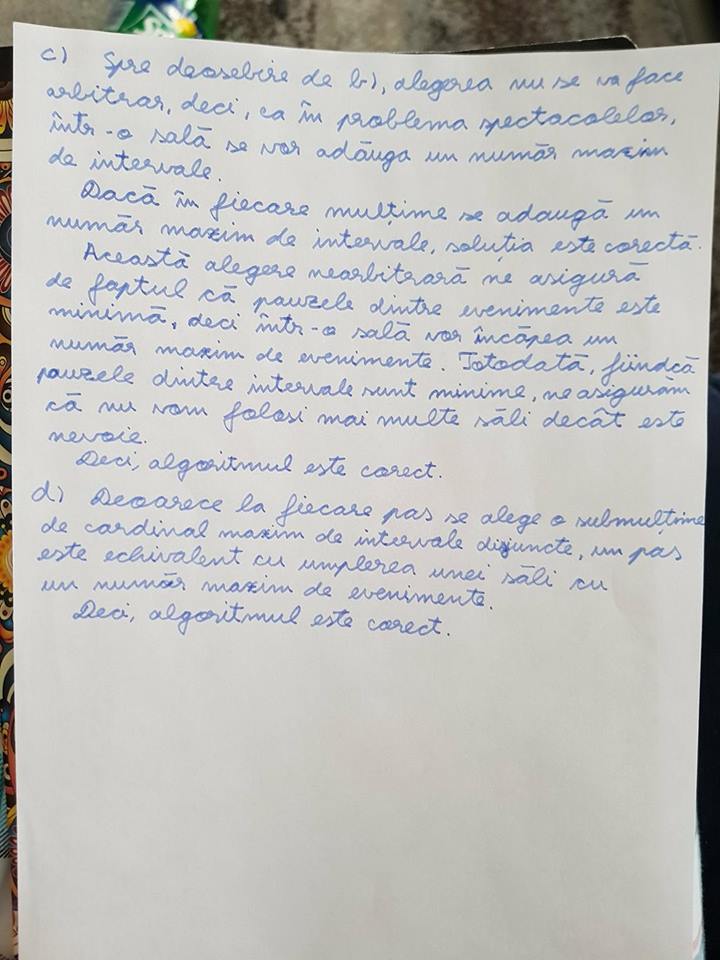 c) Spre deosebire de b), alegerea nu se va face
arbitrar, deci, ca în problema spectacolelor,
într-o sală se vor adăuga un număr maxim
de intervale.
Dacă în fiecare mulțime se adaugă un
număr maxim de intervale, soluția este corectă.
Această alegere nearbitrară ne asigură
de faptul că pauzele dintre evenimente este
minimă, deci într-o sală vor încăpea un
număr maxim de evenimente. Totodată, fiindcă
pauzele dintre intervale sunt minime, ne asigurăm
că nu vom folosi mai multe săli decât este
nevoie.
Deci, algoritmul este corect.
d) Deoarece la fiecare pas se alege o submulțime
de cardinal maxim de intervale disjuncte, un pas
este echivalent cu umplerea unei săli cu
un număr maxim de evenimente.
Deci, algoritmul este corect.